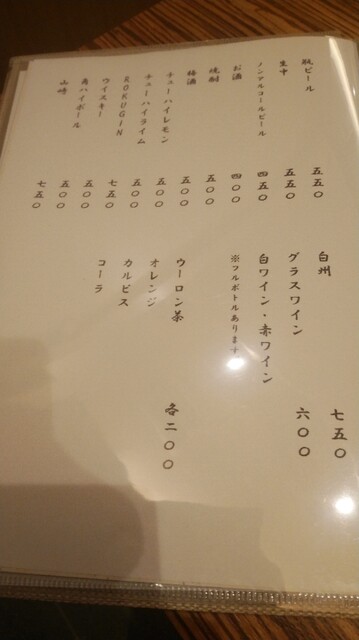 瓶ビール 五五〇
生中 五五〇
ノンアルコールビール 四五〇
お酒 四〇〇
焼酎 五〇〇
梅酒 五〇〇
チューハイレモン 五〇〇
チューハイライム 五〇〇
ROKUGIN 七五〇
ウイスキー 五〇〇
角ハイボール 五〇〇
山崎 七五〇
白州 七五〇
グラスワイン 六〇〇
白ワイン・赤ワイン
※フルボトルあります
ウーロン茶 各二〇〇
オレンジ
カルピス
コーラ